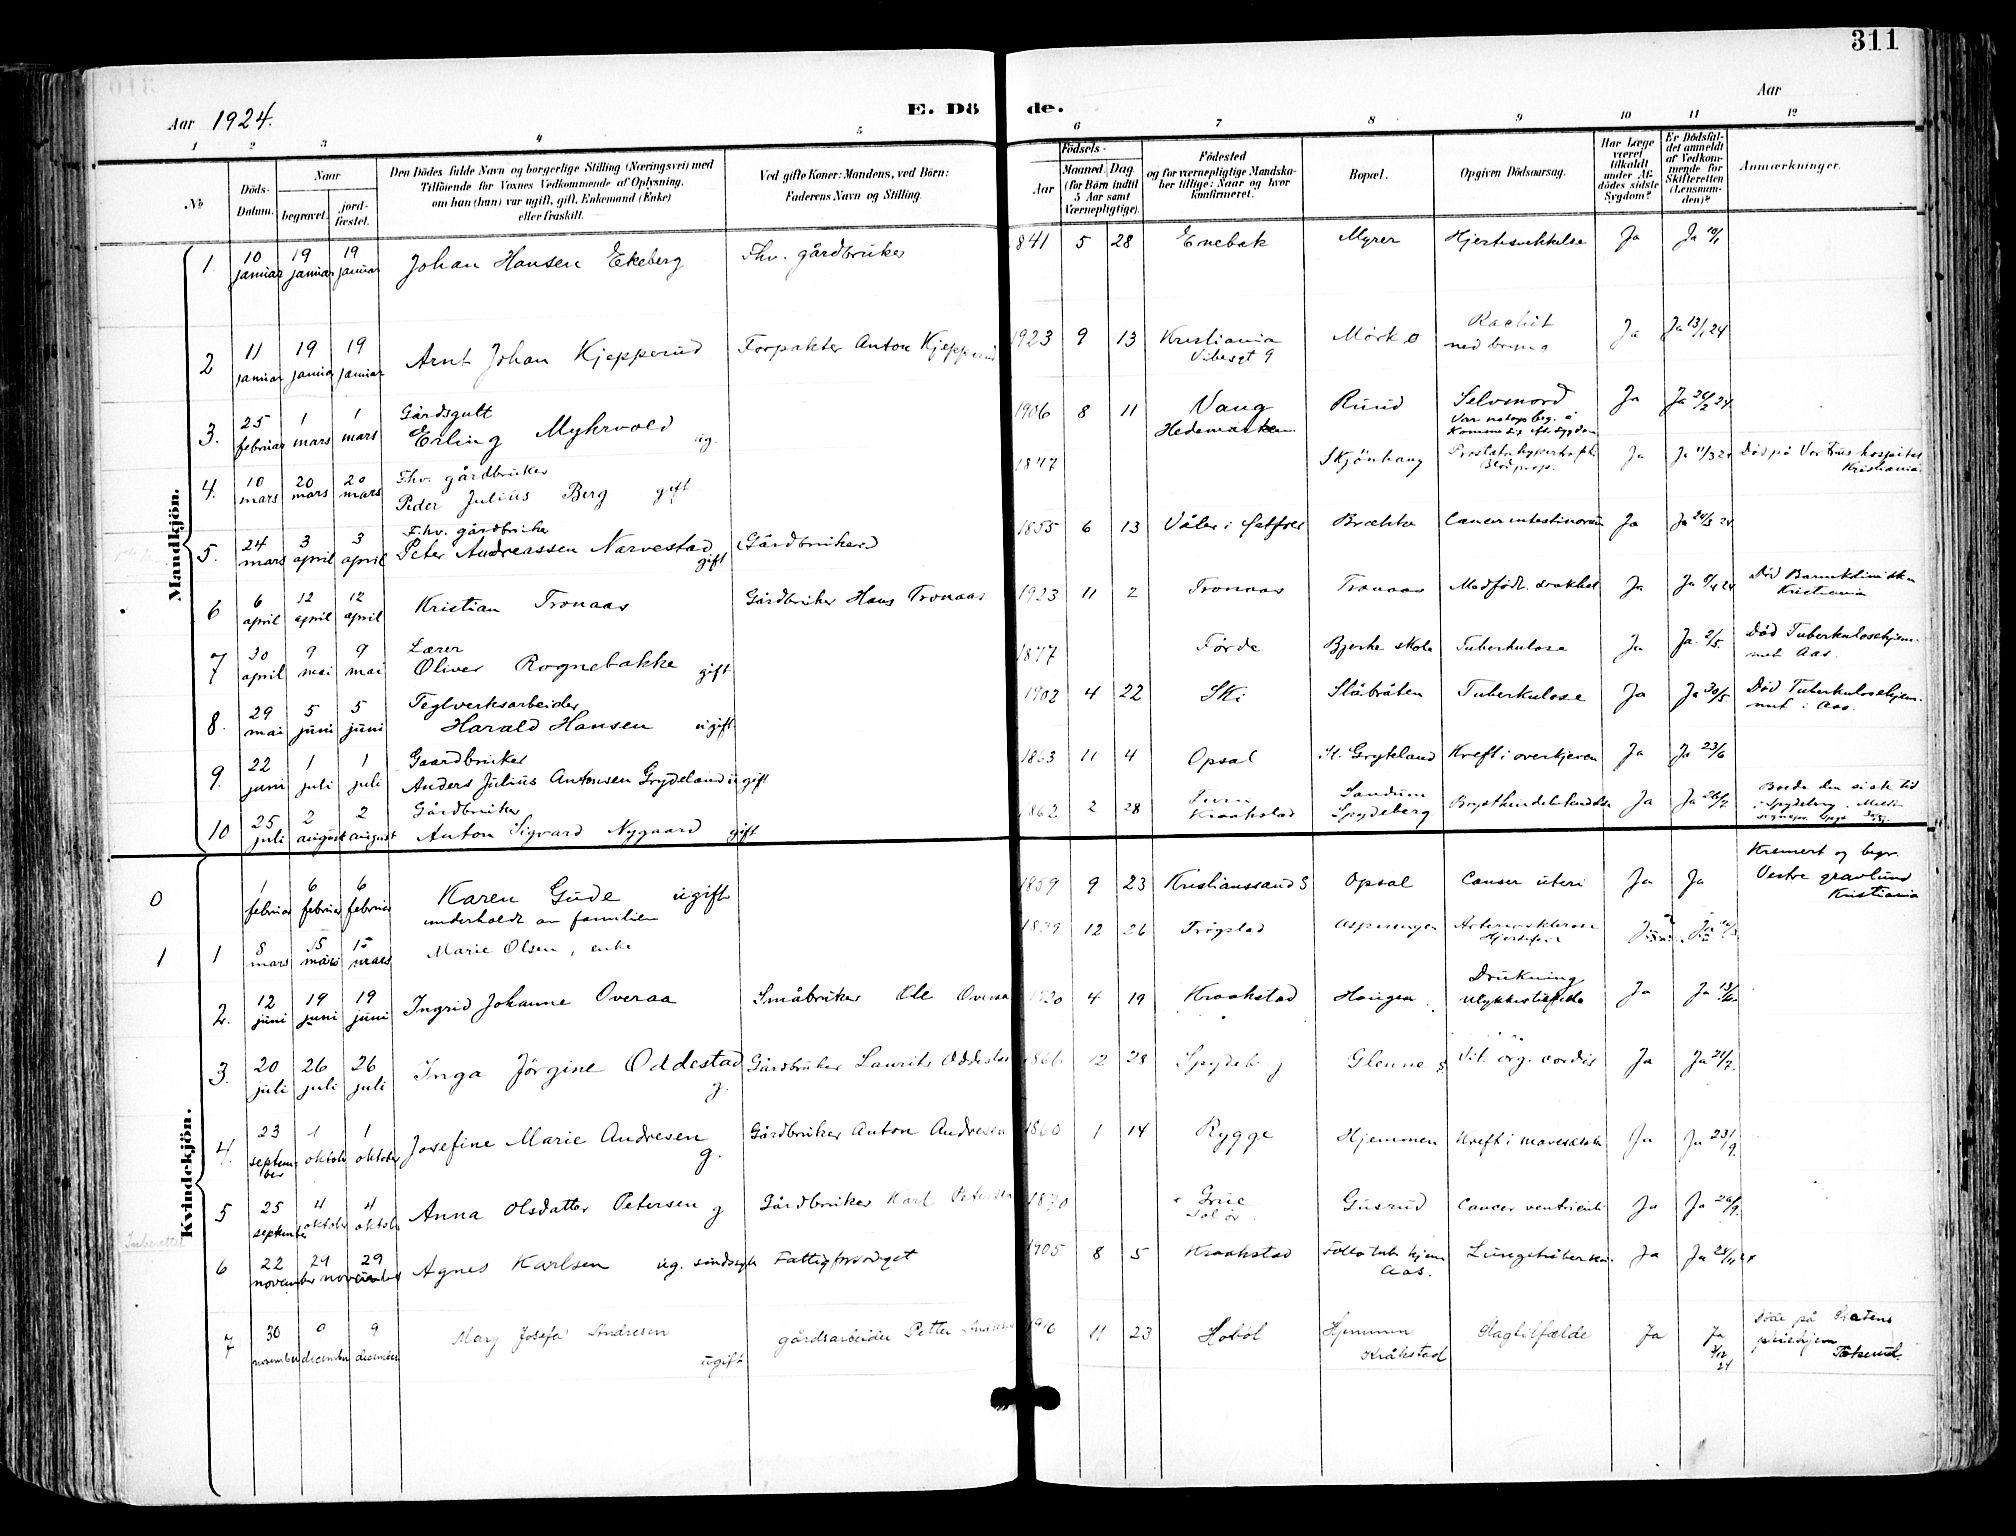 311
Aar 1924.
E. Dö de.
Aar
1 2 3 4 5 6 7 8 9 10 11 12
№
Döds-Datum.
Naar
begravet.
jord-fæstet.
Den Dödes fulde Navn og borgerlige Stilling (Næringsvei) med
Tilföiende for Voxnes Vedkommende af Oplysning,
om han (hun) var ugift, gift, Enkemand (Enke)
eller fraskilt.
Ved gifte Koner: Mandens, ved Börn:
Faderens Navn og Stilling.
Födsels-
Aar
Maaned. Dag.
(for Börn indtil
5 Aar samt
Værnepligtige).
Födested
og for værnepligtige Mandska-
ber tillige: Naar og hvor
konfirmeret.
Bopæl.
Opgiven Dödsaarsag.
Har Læge
været
tilkaldt
under Af-
dödes sidste
Sygdom?
Er Dödsfal-
det anmeldt
af Vedkom-
mende for
Skifteretten
(Lensman-
den)?
Anmærkninger.
Mandkjön.
1. 10 januar 19 januar 19 januar Johan Hansen Ekeberg Fhv. gårdbruker 841 5 28 Enebak Myrer Hjertesvekkelse Ja Ja 10/1
2 11 januar 19 januar 19 januar Arnt Johan Kjepperud Forpakter Anton Kjepperud 1923 9 13 Kristiania Vibesgt 9 Mörk ö Rachit Ja Ja 13/1 24
3. 25 februar 1 mars 1 mars Gårdsgutt
Erling Myhrvold ug. 1906 8 11 Vang Hedemarken Ruud Selvmord Ja Ja 26/2 24
4. 10 mars 20 mars 20 mars Fhv. gårdbruker
Peder Julius Berg gift 1847 Skjönhaug Prostatahypertrofi Blodprop. Ja Ja 11/3 24 Död på Vor Frues hospital Kristiania
5. 24 mars 3 april 3 april Fhv. gårdbruker
Peter Andreassen Narvestad gift Gårdbruker 1855 6 13 Våler i Östfold Brække Cancer intestinorum Ja Ja 24/3 24
6 6 april 12 april 12 april Kristian Tronaas Gårdbruker Hans Tronaas 1923 11 2 Tronaas Tronaas Medfödt svakhet Ja Ja 8/4 24 Död Barneklinikken Kristiania
7 30 april 9 mai 9 mai Lærer
Oliver Rognebakke gift 1877 Förde Bjerke skole Tuberkulose Ja Ja 2/5. Död Tuberkulosehjem-
met Aas.
8. 29 mai 5 juni 5 juni Teglverksarbeider
Harald Hansen ugift 1902 4 22 Ski Slåbråten Tuberkulose Ja Ja 30/5. Död Tuberkulosehjem-
met i Aas.
9. 22 juni 1 juli 1 juli Gaardbruker
Anders Julius Antonsen Grydeland ugift 1863 11 4 Opsal St. Grytland Kreft i overkjeven Ja Ja 23/6
10 25 juli 2 august 2 august Gårdbruker
Anton Sigvard Nygaard gift 1862 2 28 Kraakstad Sandum Spydeberg Ja Ja 26/7 Bodde den siste tid
i Spydeberg.
Kvindekjön.
0 1 februar 6 februar 6 februar Karen Gude ugift
underholdt av familien 1859 9 23 Kristianssand S Opsal Cancer uteri Ja Ja Kremert og begr.
Vestre gravlund
Kristiania
1 1 8 mars 15 mars 15 mars Marie Olsen, enke 1839 12 26 Trögstad Aspesengen Arteriosklerose Hjertefeil Ja Ja
2. 12 juni 19 juni 19 juni Ingrid Johanne Overaa Småbruker Ole Overaa 1920 4 19 Kraakstad Haugen Drukning ulykkestilfelde Ja Ja 13/6
3. 20 juli 26 juli 26 juli Inga Jörgine Oddestad g. Gårdbruker Laurits Oddestad 1866 12 28 Spydeb g Glenne S Vit. org. cordis Ja Ja 21/7.
4. 23 september 1 oktober 1 oktober Josefine Marie Andresen g. Gårdbruker Anton Andresen 1860 1 14 Rygge Hjemmen Kreft i mavesekk Ja Ja 23/9.
5 25 september 4 oktober 4 oktober Anna Olsdatter Petersen g Gårdbruker Karl Petersen 1870 Grue Solör. Gusrud Cancer ventriculi Ja Ja 26/9.
6 22 november 29 november 29 november Agnes Karlsen ug. sindssyk Fattigforsörget 1905 8 5 Kraakstad Follo tub. hjem Aas. Lungetuberkul. Ja Ja 24/11 24
7 30 november 9 december 9 december Mary Josefa Andresen ugift gårdsarbeider Petter Andresen 1916 11 23 Hobøl Hjemmen Kråkstad Slagtilfælde Ja Ja 2/12 24 Döde på Statens
pleiehjem